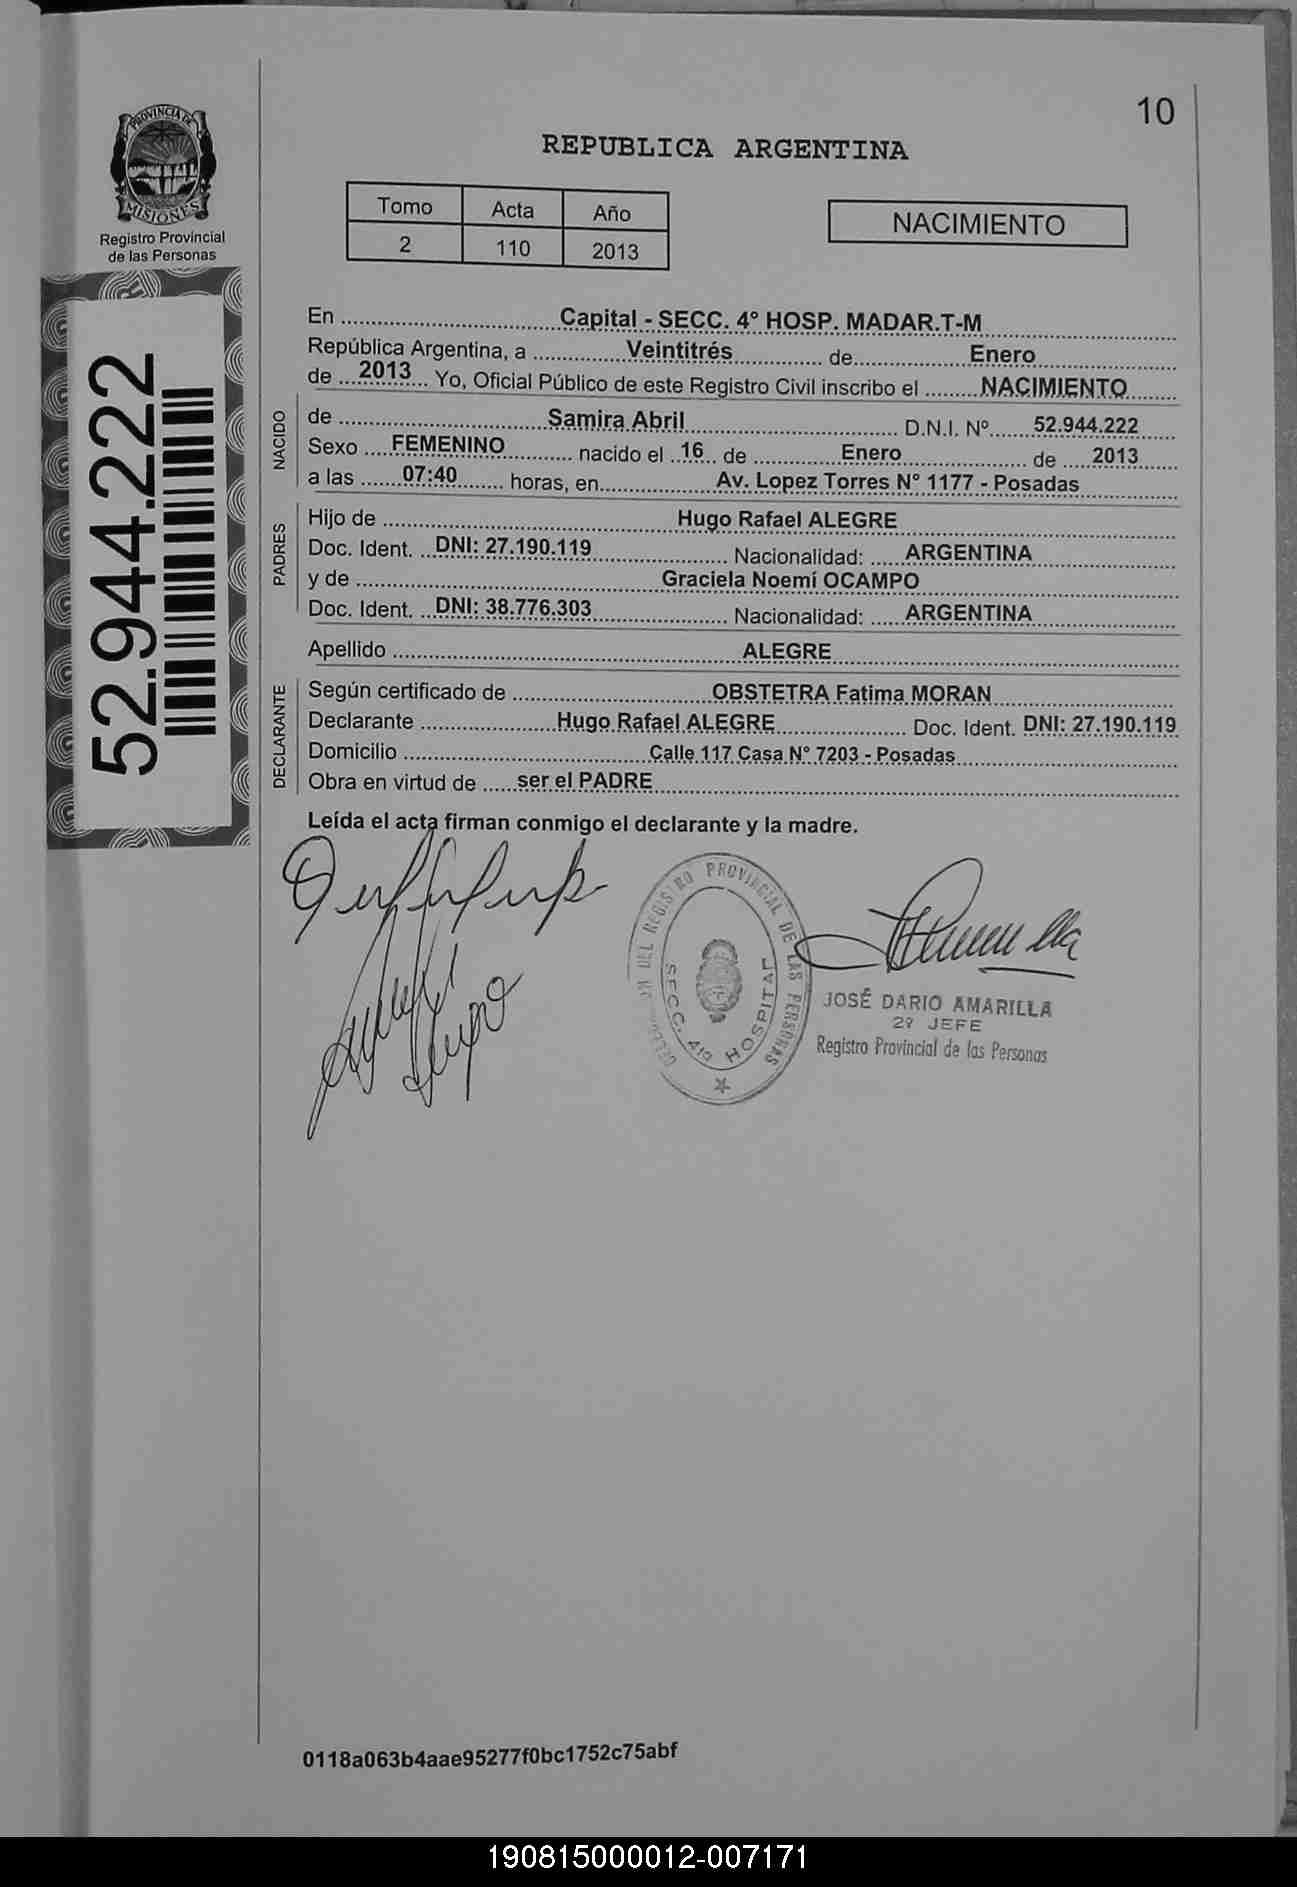 10
REPUBLICA ARGENTINA
PROVINCIA DE
MISIONES
Registro Provincial
de las Personas
Tomo Acta Año
2 110 2013
NACIMIENTO
52.944.222
En Capital - SECC. 4° HOSP. MADAR.T-M
República Argentina, a Veintitrés de Enero
de 2013 Yo, Oficial Público de este Registro Civil inscribo el NACIMIENTO
NACIDO
de Samira Abril D.N.I. Nº 52.944.222
Sexo FEMENINO nacido el 16 de Enero de 2013
a las 07:40 horas, en Av. Lopez Torres N° 1177 - Posadas
PADRES
Hijo de Hugo Rafael ALEGRE
Doc. Ident. DNI: 27.190.119 Nacionalidad: ARGENTINA
y de Graciela Noemí OCAMPO
Doc. Ident. DNI: 38.776.303 Nacionalidad: ARGENTINA
Apellido ALEGRE
DECLARANTE
Según certificado de OBSTETRA Fatima MORAN
Declarante Hugo Rafael ALEGRE Doc. Ident. DNI: 27.190.119
Domicilio Calle 117 Casa N° 7203 - Posadas
Obra en virtud de ser el PADRE
Leída el acta firman conmigo el declarante y la madre.
DEL REGISTRO PROVINCIAL DE LAS PERSONAS
SECC. 4ta HOSPITAL
JOSÉ DARIO AMARILLA
2º JEFE
Registro Provincial de las Personas
0118a063b4aae95277f0bc1752c75abf
190815000012-007171